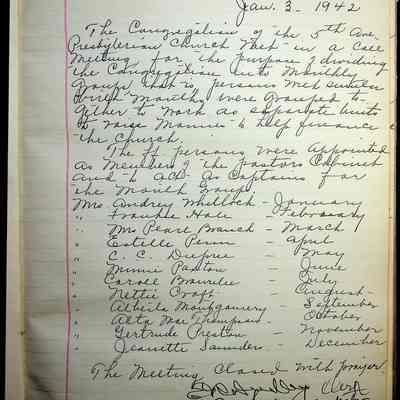 Jan. 3. 1942
The Congregation of the 5th Ave.
Presbyterian Church Met in a Call
Meeting for the purpose of dividing
the Congregation into Monthly
Groups, that is persons with similar
birth Months were Grouped to-
gether to work as separate units
to raise Monies to help finance
the Church.
The ff. persons were Appointed
as Members of the Pastors Cabinet
and to act as Captains for
the Month Group
Mrs. Audrey Whitlock - January
" Frankie Hale - February
" Mrs Pearl Branch - March
" Estelle Penn - April
" C. C. Dupree - May
" Minnie Paxton - June
" Carole - July
" Nettie Craft - August -
" Alberta Montgomery - September
" Alta Mae Thompson - October
" Gertrude Preston - November
" Jeanette Saunders - December
The Meeting Closed with prayer.
Clerk